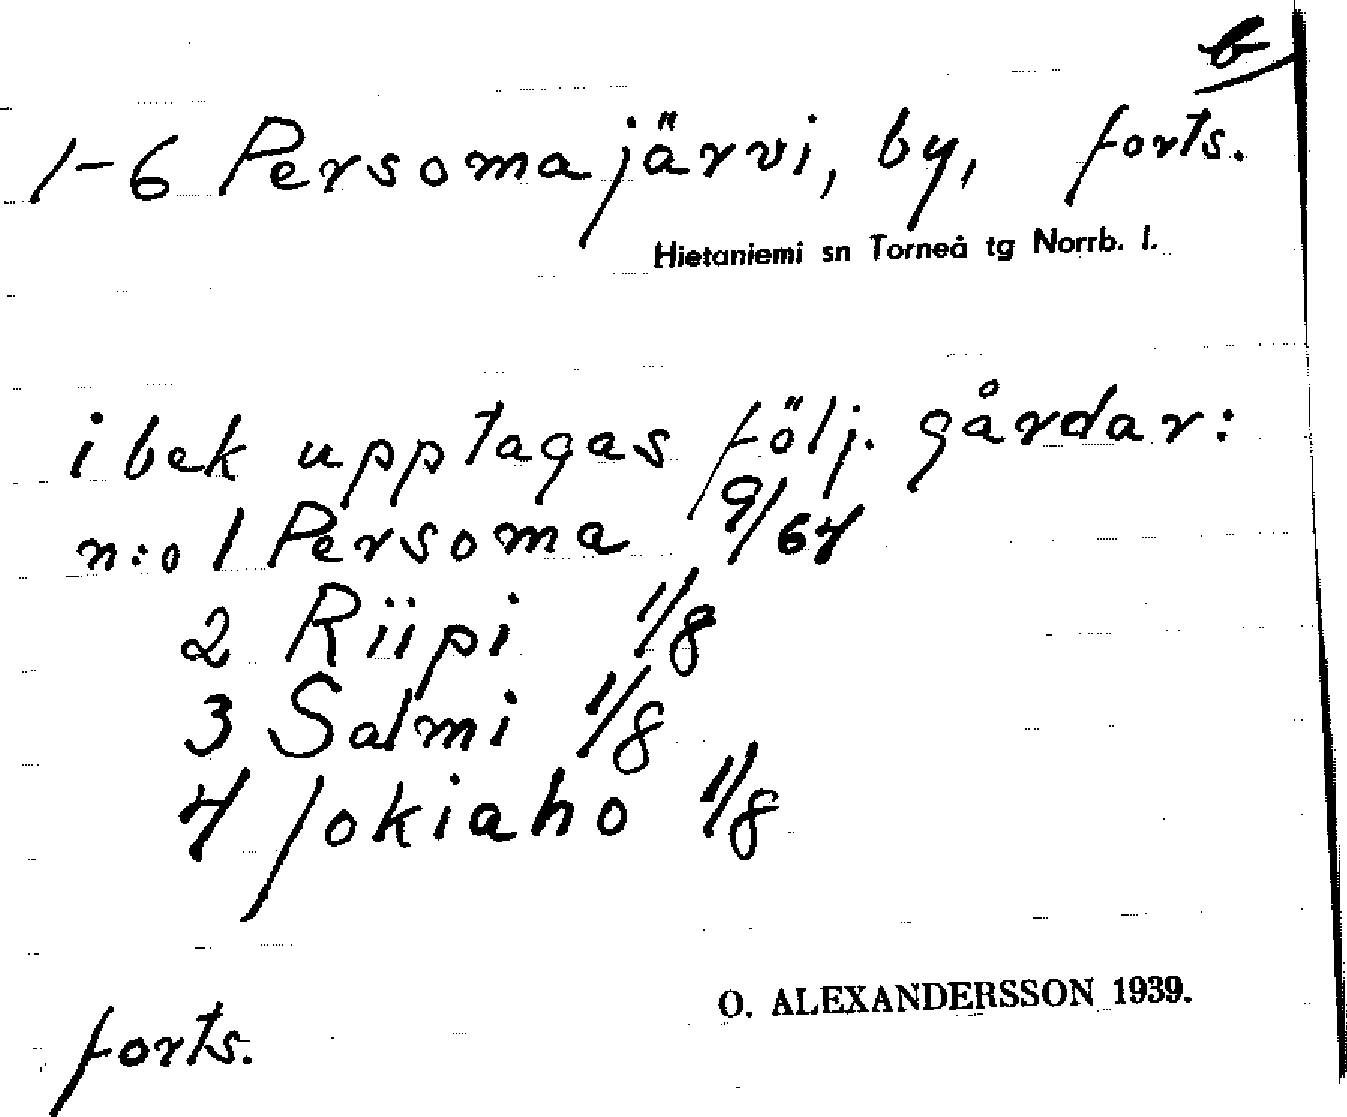 b
1-6 Persomajärvi, by, forts.
Hietaniemi sn Torneå tg Norrb. l.
i bek upptagas följ. gårdar:
n:o 1 Persoma 9/64
2 Riipi 1/8
3 Salmi 1/8
4 Jokiaho 1/8
O. ALEXANDERSSON 1939.
forts.